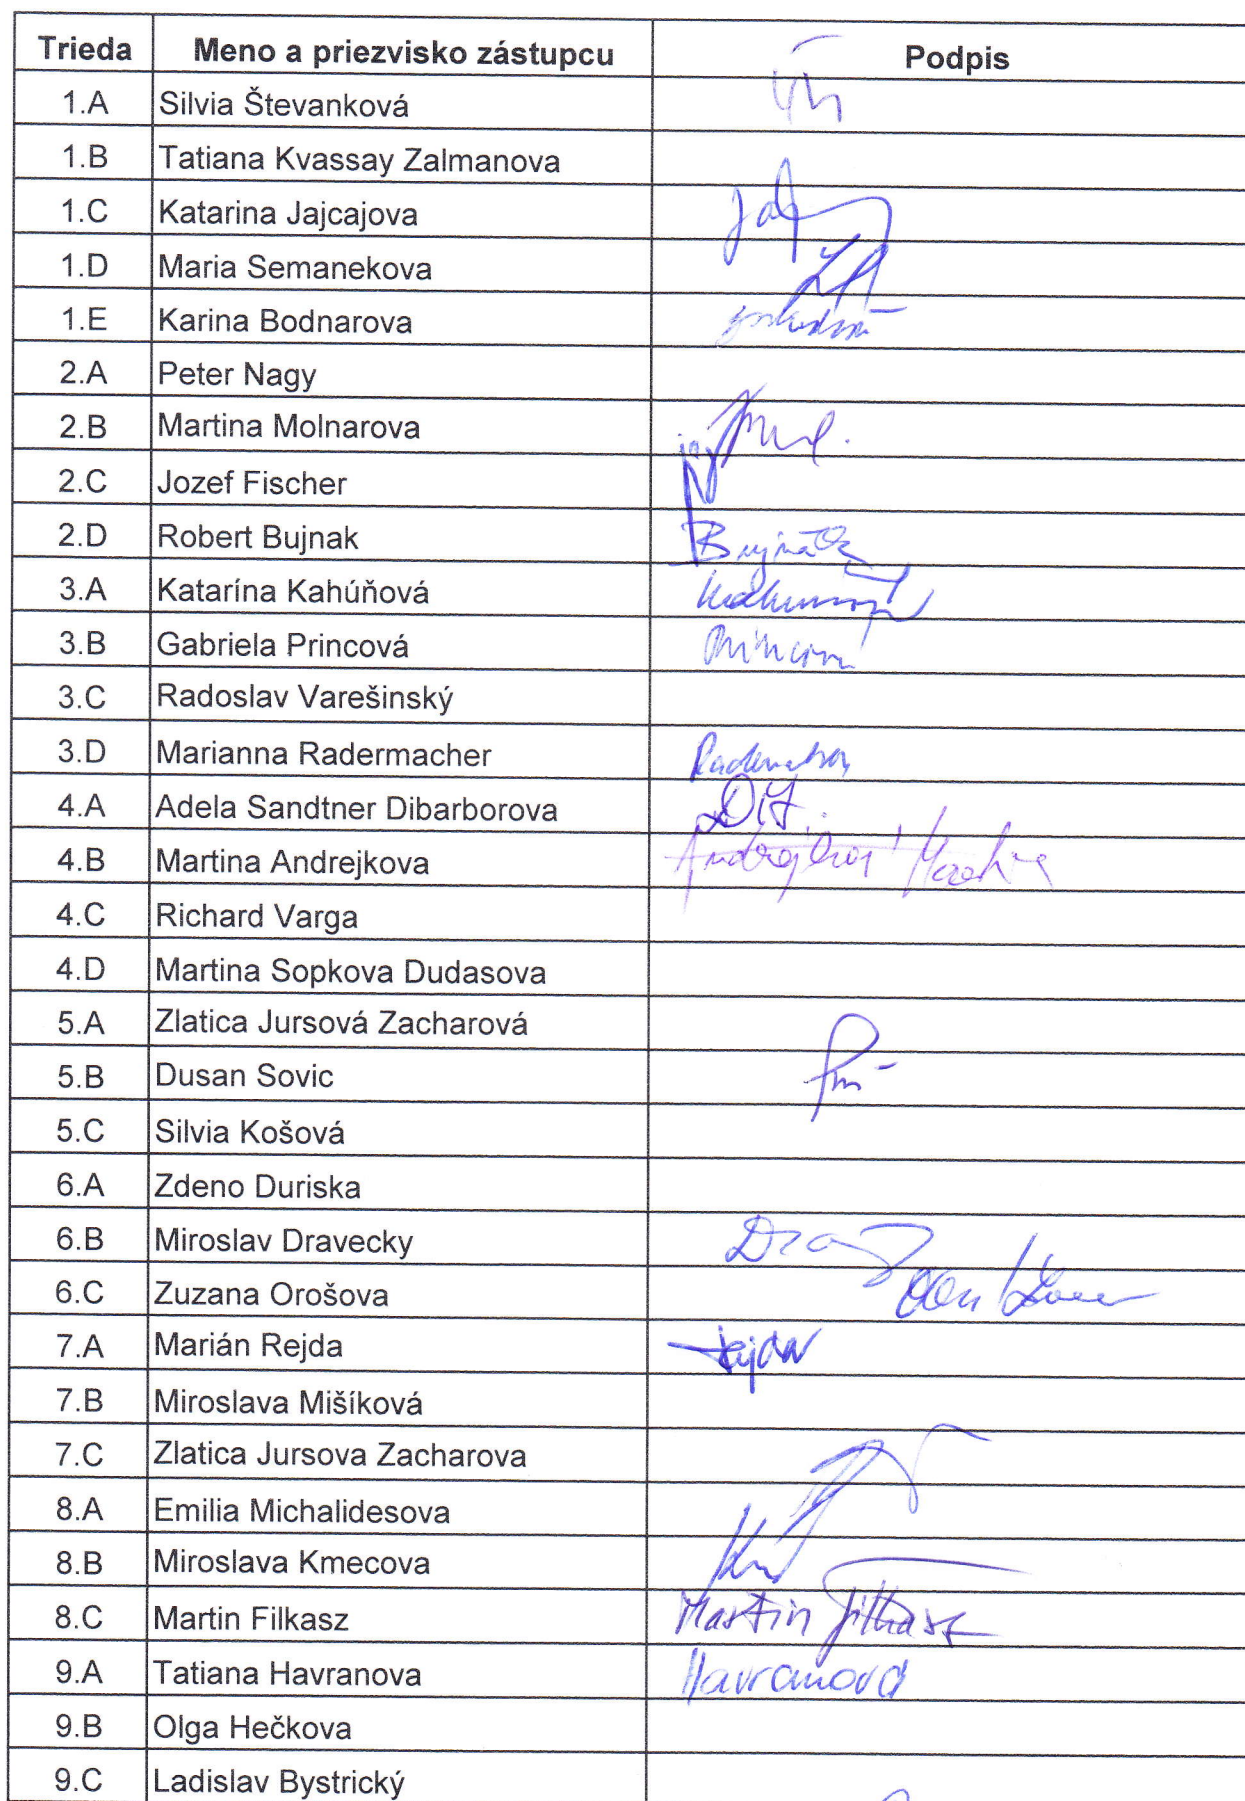 Trieda Meno a priezvisko zástupcu Podpis
1.A Silvia Števanková
1.B Tatiana Kvassay Zalmanova
1.C Katarina Jajcajova
1.D Maria Semanekova
1.E Karina Bodnarova
2.A Peter Nagy
2.B Martina Molnarova
2.C Jozef Fischer
2.D Robert Bujnak Bujnák
3.A Katarína Kahúňová
3.B Gabriela Princová
3.C Radoslav Varešinský
3.D Marianna Radermacher
4.A Adela Sandtner Dibarborova
4.B Martina Andrejkova
4.C Richard Varga
4.D Martina Sopkova Dudasova
5.A Zlatica Jursová Zacharová
5.B Dusan Sovic
5.C Silvia Košová
6.A Zdeno Duriska
6.B Miroslav Dravecky
6.C Zuzana Orošova
7.A Marián Rejda
7.B Miroslava Mišíková
7.C Zlatica Jursova Zacharova
8.A Emilia Michalidesova
8.B Miroslava Kmecova
8.C Martin Filkasz Martin Filkasz
9.A Tatiana Havranova Havranová
9.B Olga Hečkova
9.C Ladislav Bystrický